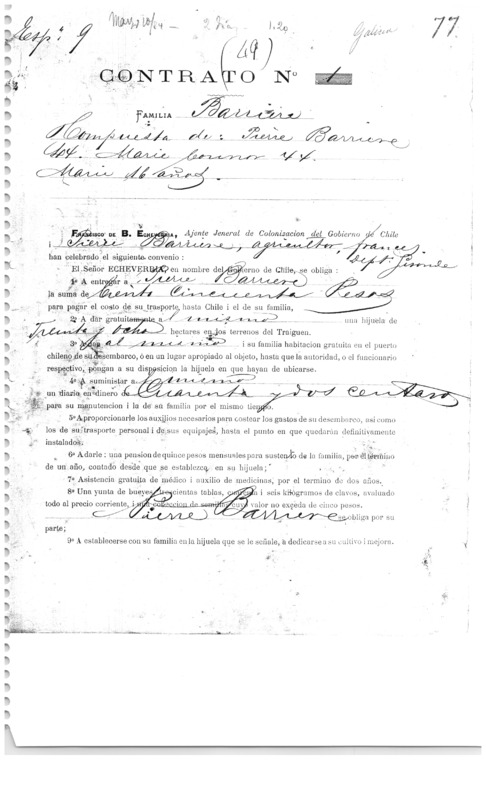 Esp. 9
2 Dia
1.20
77
(49)
CONTRATO Nº 1
FAMILIA Barriere
Compuesta de: Pierre Barriere
Marie Connor 44.
Marie 16 años.
FRANCISCO DE B. ECHEVERRÍA, Ajente Jeneral de Colonizacion del Gobierno de Chile
i Pierre Barriere, agricultor, frances,
dept. Gironde
han celebrado el siguiente convenio:
El Señor ECHEVERRÍA, en nombre del Gobierno de Chile, se obliga:
1º A entregar a Pierre Barriere
la suma de Ciento Cincuenta Pesos
para pagar el costo de su trasporte, hasta Chile i el de su familia,
2º A dar gratuitamente a l mismo una hijuela de
Treinta y ocho hectares en los terrenos del Traiguen.
3º al mismo i su familia habitacion gratuita en el puerto
chileno de su desembarco, ó en un lugar apropiado al objeto, hasta que la autoridad, o el funcionario
respectivo, pongan a su disposicion la hijuela en que hayan de ubicarse.
4º A suministar a l mismo
un diario en dinero de Cuarenta y dos centavos
para su manutencion i la de su familia por el mismo tiempo.
5º A proporcionarle los auxilios necesarios para costear los gastos de su desembarco, asi como
los de su trasporte personal i de sus equipajes, hasta el punto en que quedarán definitivamente
instalados.
6º A darle: una pension de quince pesos mensuales para sustento de la familia, por el término
de un año, contado desde que se establezca en su hijuela;
7º Asistencia gratuita de médico i auxilio de medicinas, por el termino de dos años.
8º Una yunta de bueyes, trescientas tablas, cuarenta i seis kilógramos de clavos, evaluado
todo al precio corriente, i una coleccion de semillas cuyo valor no exceda de cinco pesos.
Pierre Barriere se obliga por su
parte;
9º A establecerse con su familia en la hijuela que se le señale, à dedicarse a su cultivo i mejora.